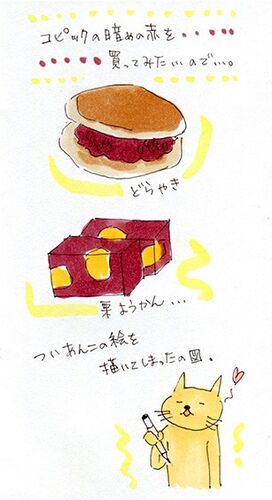 コピックの暗めの赤を
買ってみたいので…。
どらやき
栗ようかん...
ついあんこの絵を
描いてしまったの図。